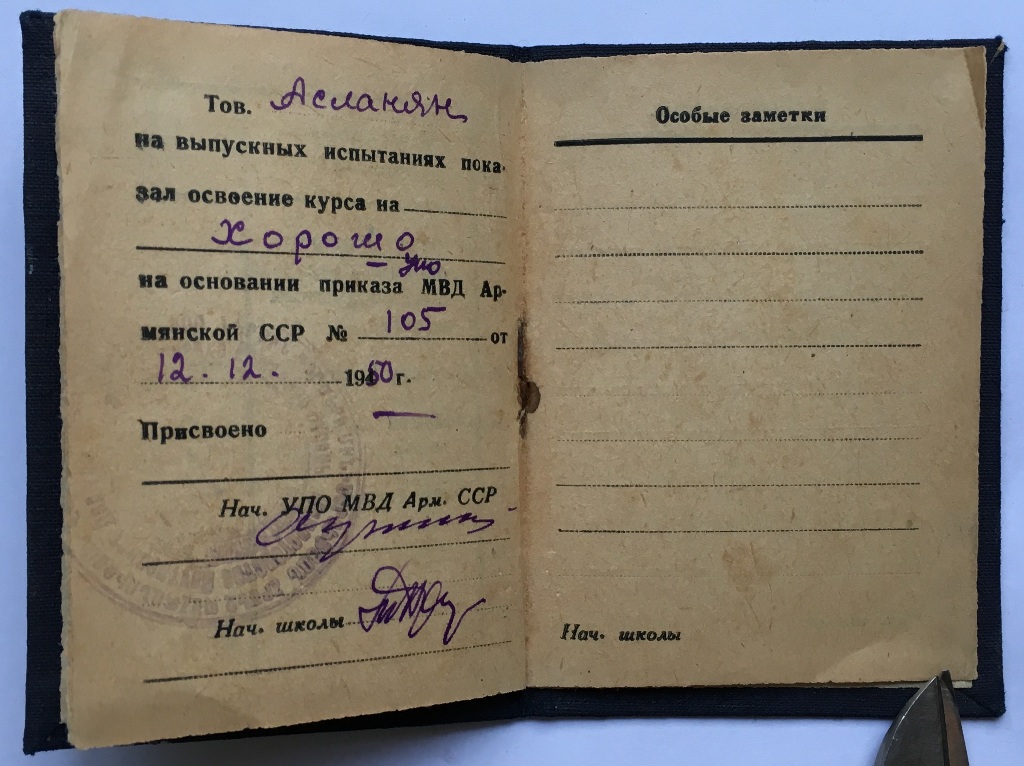 Тов. Асланян
на выпускных испытаниях пока-
зал освоение курса на
Хорошо
упо
на основании приказа МВД Ар-
мянской ССР № 105 от
12. 12. 1950 г.
Присвоено
Нач. УПО МВД Арм. ССР
Нач. школы
Особые заметки
Нач. школы